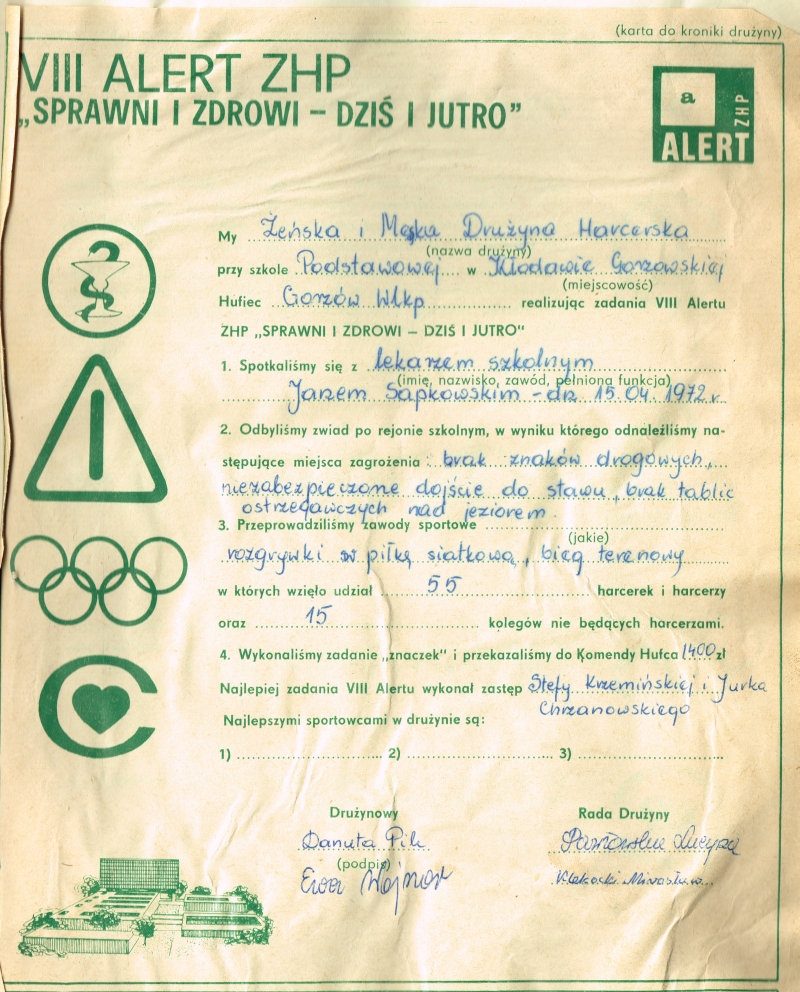 (karta do kroniki drużyny)
VIII ALERT ZHP
„SPRAWNI I ZDROWI – DZIŚ I JUTRO”
a
ZHP
ALERT
My Żeńska i Męska Drużyna Harcerska
(nazwa drużyny)
przy szkole Podstawowej w Kłodawie Gorzowskiej
(miejscowość)
Hufiec Gorzów Wlkp realizując zadania VIII Alertu
ZHP „SPRAWNI I ZDROWI – DZIŚ I JUTRO”
1. Spotkaliśmy się z lekarzem szkolnym
(imię, nazwisko, zawód, pełniona funkcja)
Janem Sapkowskim – dn 15.04.1972 r.
2. Odbyliśmy zwiad po rejonie szkolnym, w wyniku którego odnaleźliśmy na-
stępujące miejsca zagrożenia: brak znaków drogowych,
niezabezpieczone dojście do stawu, brak tablic
ostrzegawczych nad jeziorem.
3. Przeprowadziliśmy zawody sportowe
(jakie)
rozgrywki w piłkę siatkową, bieg terenowy
w których wzięło udział 55 harcerek i harcerzy
oraz 15 kolegów nie będących harcerzami.
4. Wykonaliśmy zadanie „znaczek" i przekazaliśmy do Komendy Hufca 1400 zł
Najlepiej zadania VIII Alertu wykonał zastęp Stefy Krzemińskiej i Jurka
Chrzanowskiego
Najlepszymi sportowcami w drużynie są:
1) 2) 3)
Drużynowy Rada Drużyny
Danuta Pik
(podpis)
Ewa Wojnar